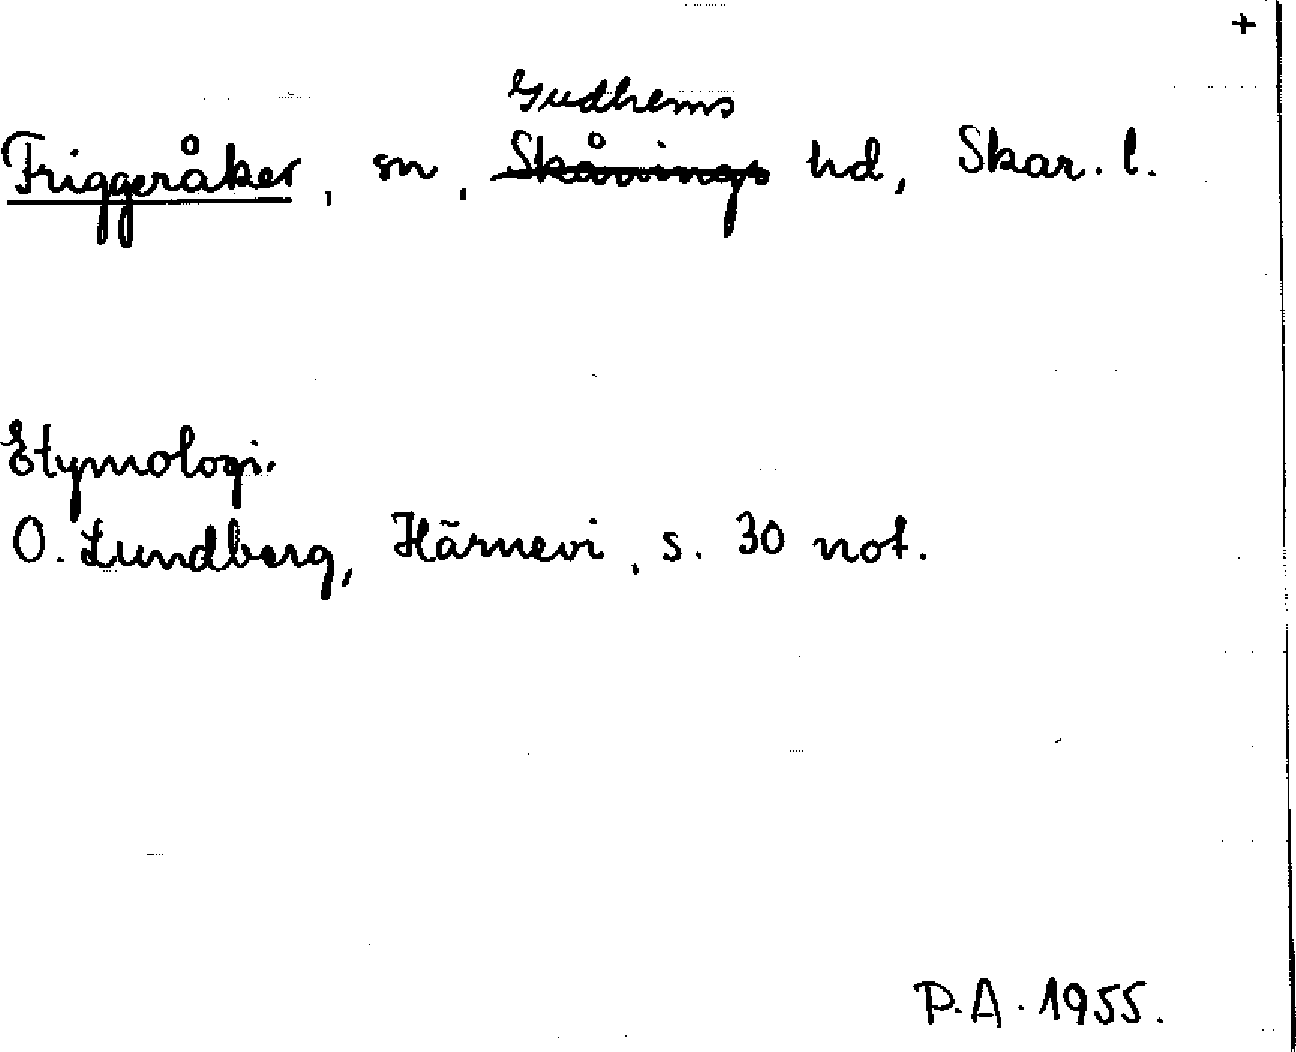 +
Friggeråker, sn, Gudhems hd, Skar. l.
Skånings
Etymologi.
O. Lundberg, Härnevi, s. 30 not.
P.A. 1955.